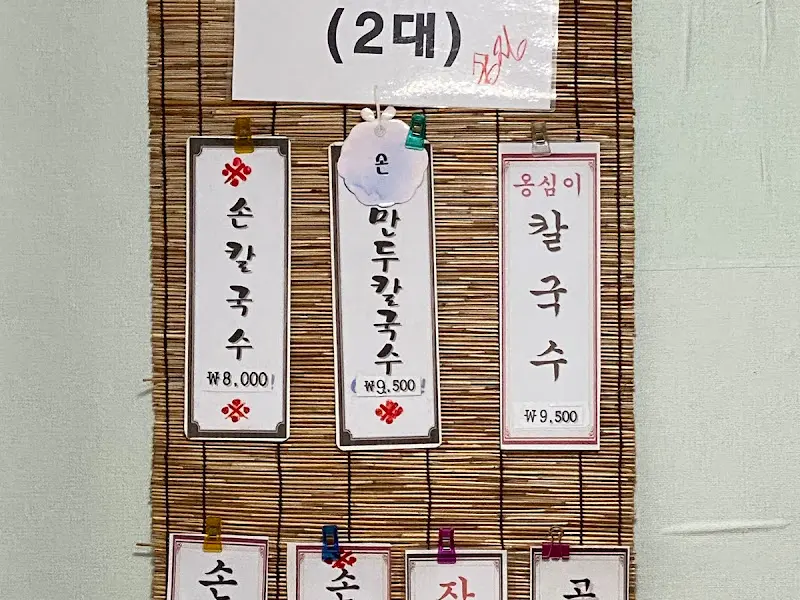 (2대)
손칼국수
₩8,000
손
만두칼국수
₩9,500
옹심이
칼국수
₩9,500
손
손